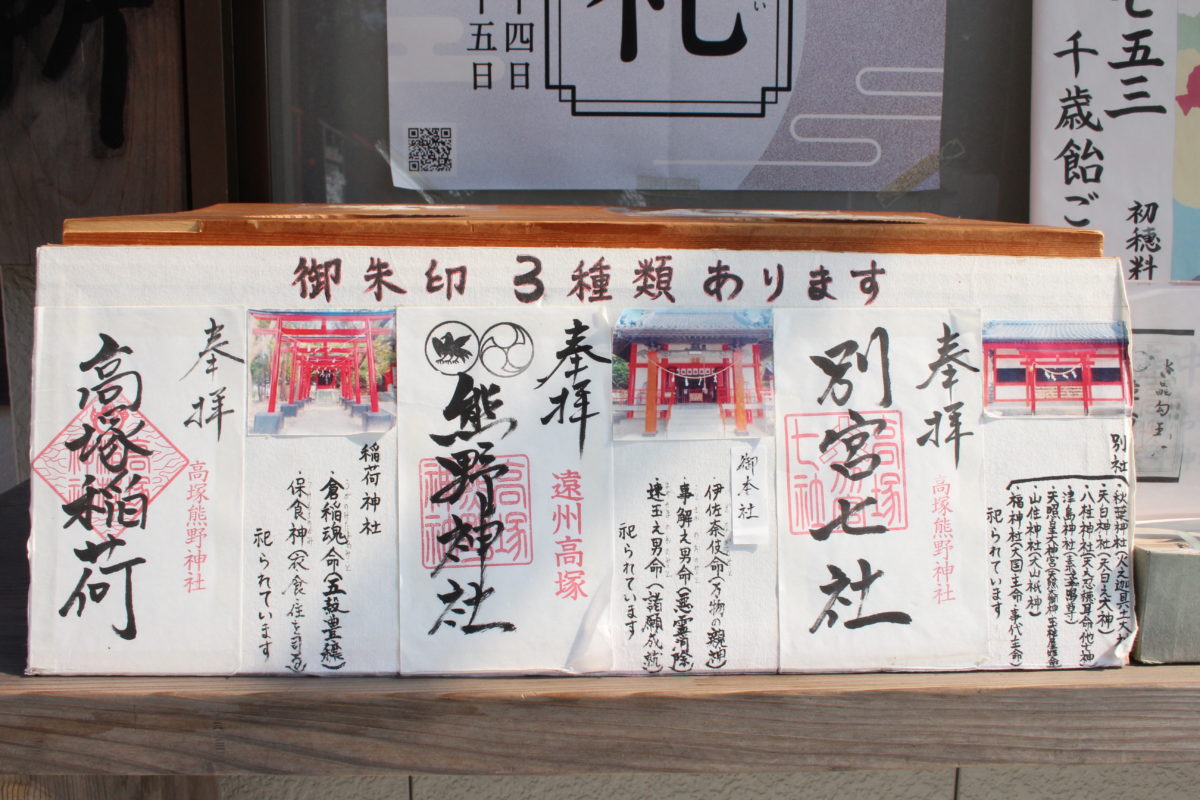 十四日
十五日
礼
七五三
千歳飴ご
初穂料
御朱印 3種類 あります
別社
秋葉神社(火之迦具土大神)
天白神社(天白之大神)
八柱神社(天之忍穂耳命他七神)
津島神社
山住神社(大山祇神)
福神社(大国主命・事代主命)
祀られています
奉拝
高塚熊野神社
別宮七社
御本社
伊佐奈使命(万物の親神)
事解之男命(悪霊消除)
速玉之男命(諸願成就)
祀られています
奉拝
遠州高塚
熊野神社
稲荷神社
・倉稲魂命(五穀豊穣)
・保食神(衣食住を司る)
祀られています
奉拝
高塚熊野神社
高塚稲荷